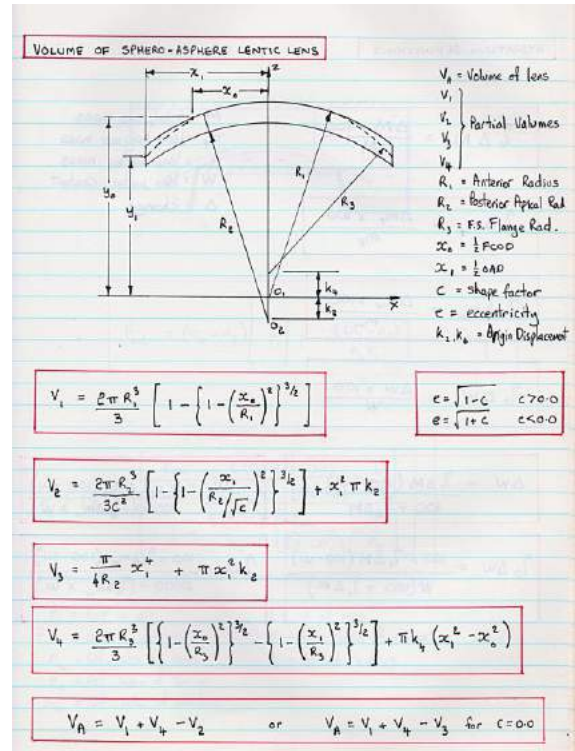 VOLUME OF SPHERO-ASPHERE LENTIC LENS
z
x₁
x₀
y₀
y₁
R₁
R₂
R₃
k₄
O₁
x
k₂
O₂
Vₐ = Volume of lens
V₁
V₂
V₃
V₄
Partial Volumes
R₁ = Anterior Radius
R₂ = Posterior Apical Rad
R₃ = F.S. Flange Rad.
x₀ = ½ FCOD
x₁ = ½ OAD
c = shape factor
e = eccentricity
k₂, k₄ = Origin Displacement
V₁ = 2πR₁³/3 [1 - {1 - (x₀/R₁)²}^3/2]
e = √(1-c) c>0.0
e = √(1+c) c<0.0
V₂ = 2πR₂³/3c² [1 - {1 - (x₁/(R₂/√c))²}^3/2] + x₁² π k₂
V₃ = π/4R₂ x₁⁴ + π x₁² k₂
V₄ = 2πR₃³/3 [{1 - (x₀/R₃)²}^3/2 - {1 - (x₁/R₃)²}^3/2] + πk₄ (x₁² - x₀²)
V_A = V₁ + V₄ - V₂ or V_A = V₁ + V₄ - V₃ for c=0.0